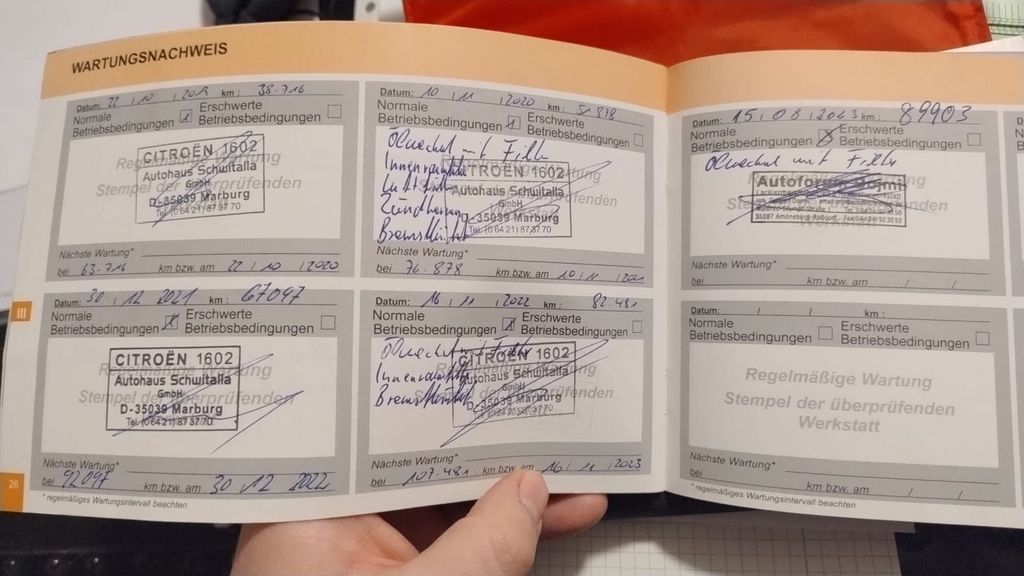 WARTUNGSNACHWEIS
Datum: 22 / 10 / 2019 km: 38.716
Normale Erschwerte
Betriebsbedingungen x Betriebsbedingungen
Regelmäßige Wartung
Stempel der überprüfenden
CITROËN 1602
Autohaus Schwitalla
GmbH
D-35039 Marburg
Tel. (0 64 21) 87 37 70
Nächste Wartung*
bei 63.716 km bzw. am 22 / 10 / 2020
Datum: 10 / 11 / 2020 km: 51.878
Normale Erschwerte
Betriebsbedingungen x Betriebsbedingungen
Ölwechsel mit Filter
Innenraumfilter
Luftfilter
Zündkerzen
CITROËN 1602
Autohaus Schwitalla
GmbH
D-35039 Marburg
Tel. (0 64 21) 87 37 70
Nächste Wartung*
bei 76.878 km bzw. am 10 / 11 / 2021
Datum: 15 / 08 / 2023 km: 89903
Normale Erschwerte
Betriebsbedingungen x Betriebsbedingungen
Ölwechsel mit Filter
Autoforum
35287 Amöneburg-Roßdorf
Nächste Wartung*
bei km bzw. am / /
III
Datum: 30 / 12 2021 km: 67097
Normale Erschwerte
Betriebsbedingungen x Betriebsbedingungen
Regelmäßige Wartung
Stempel der überprüfenden
CITROËN 1602
Autohaus Schwitalla
GmbH
D-35039 Marburg
Tel. (0 64 21) 87 37 70
Nächste Wartung*
bei 92097 km bzw. am 30 / 12 2022
Datum: 16 / 11 / 2022 km: 82.481
Normale Erschwerte
Betriebsbedingungen x Betriebsbedingungen
Ölwechsel mit Filter
CITROËN 1602
Autohaus Schwitalla
GmbH
D-35039 Marburg
Tel. (0 64 21) 87 37 70
Nächste Wartung*
bei 107.481 km bzw. am 16 / 11 / 2023
Datum: / / km:
Normale Erschwerte
Betriebsbedingungen Betriebsbedingungen
Regelmäßige Wartung
Stempel der überprüfenden
Werkstatt
Nächste Wartung*
bei km bzw. am / /
26
* regelmäßiges Wartungsintervall beachten
* regelmäßiges Wartungsintervall beachten